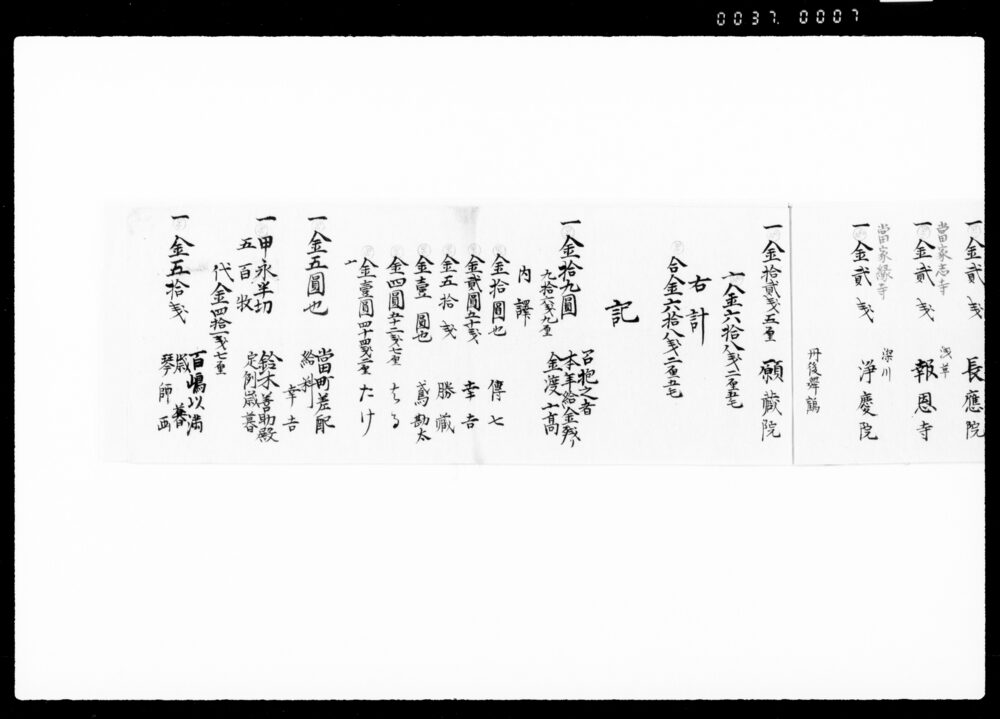 0037. 0007
一金貳戔 長應院
當家志寺
一金貳戔 浅草 報恩寺
當家縁寺
一金貳戔 深川 淨慶院
丹後舞鶴
一金拾貳戔五厘 願蔵院
〆金六拾八戔二厘五毛
右計
合金六拾八戔二厘五毛
記
一金拾九圓
九拾六戔九厘
召抱之者
本年給金残り
金渡し高
内譯
金拾圓也 傳七
金貳圓五十戔 幸吉
金五拾戔 勝蔵
金壹圓也 鳶勘太
金四圓五十二戔七厘 はる
金壹圓四十四戔二厘 たけ
一金五圓也 當町差配
給料 幸吉
一甲永半切 鈴木善助殿
五百枚 定例歳暮
代金四拾一戔七厘
一金五拾戔 百嶋以満
歳暮
琴師匠